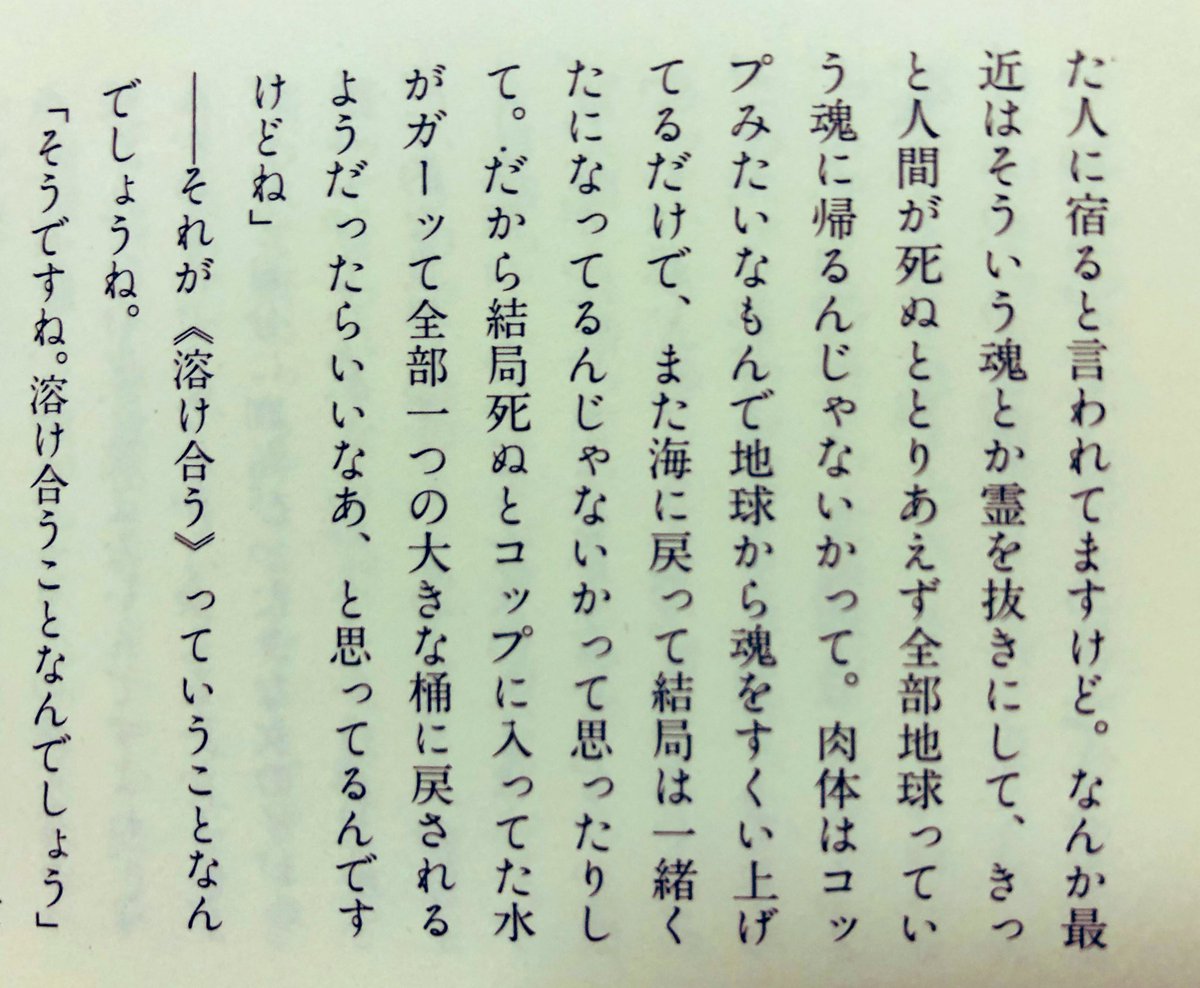 た人に宿ると言われてますけど。なんか最
近はそういう魂とか霊を抜きにして、きっ
と人間が死ぬととりあえず全部地球ってい
う魂に帰るんじゃないかって。肉体はコッ
プみたいなもんで地球から魂をすくい上げ
てるだけで、また海に戻って結局は一緒く
たになってるんじゃないかって思ったりし
て。だから結局死ぬとコップに入ってた水
がガーッて全部一つの大きな桶に戻される
ようだったらいいなあ、と思ってるんです
けどね」
――それが《溶け合う》っていうことなん
でしょうね。
「そうですね。溶け合うことなんでしょう」